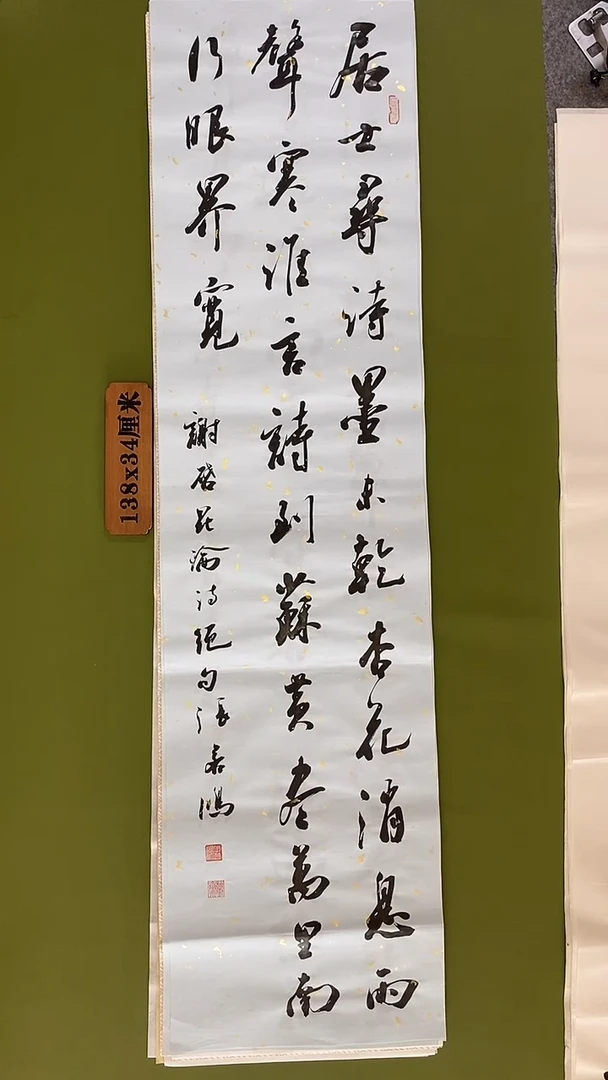 居士尋詩墨未乾杏花消息雨
聲寒誰言詩到蘇黃盡萬里南
行眼界寬
謝啓昆論詩絕句張嘉鴻
138x34厘米